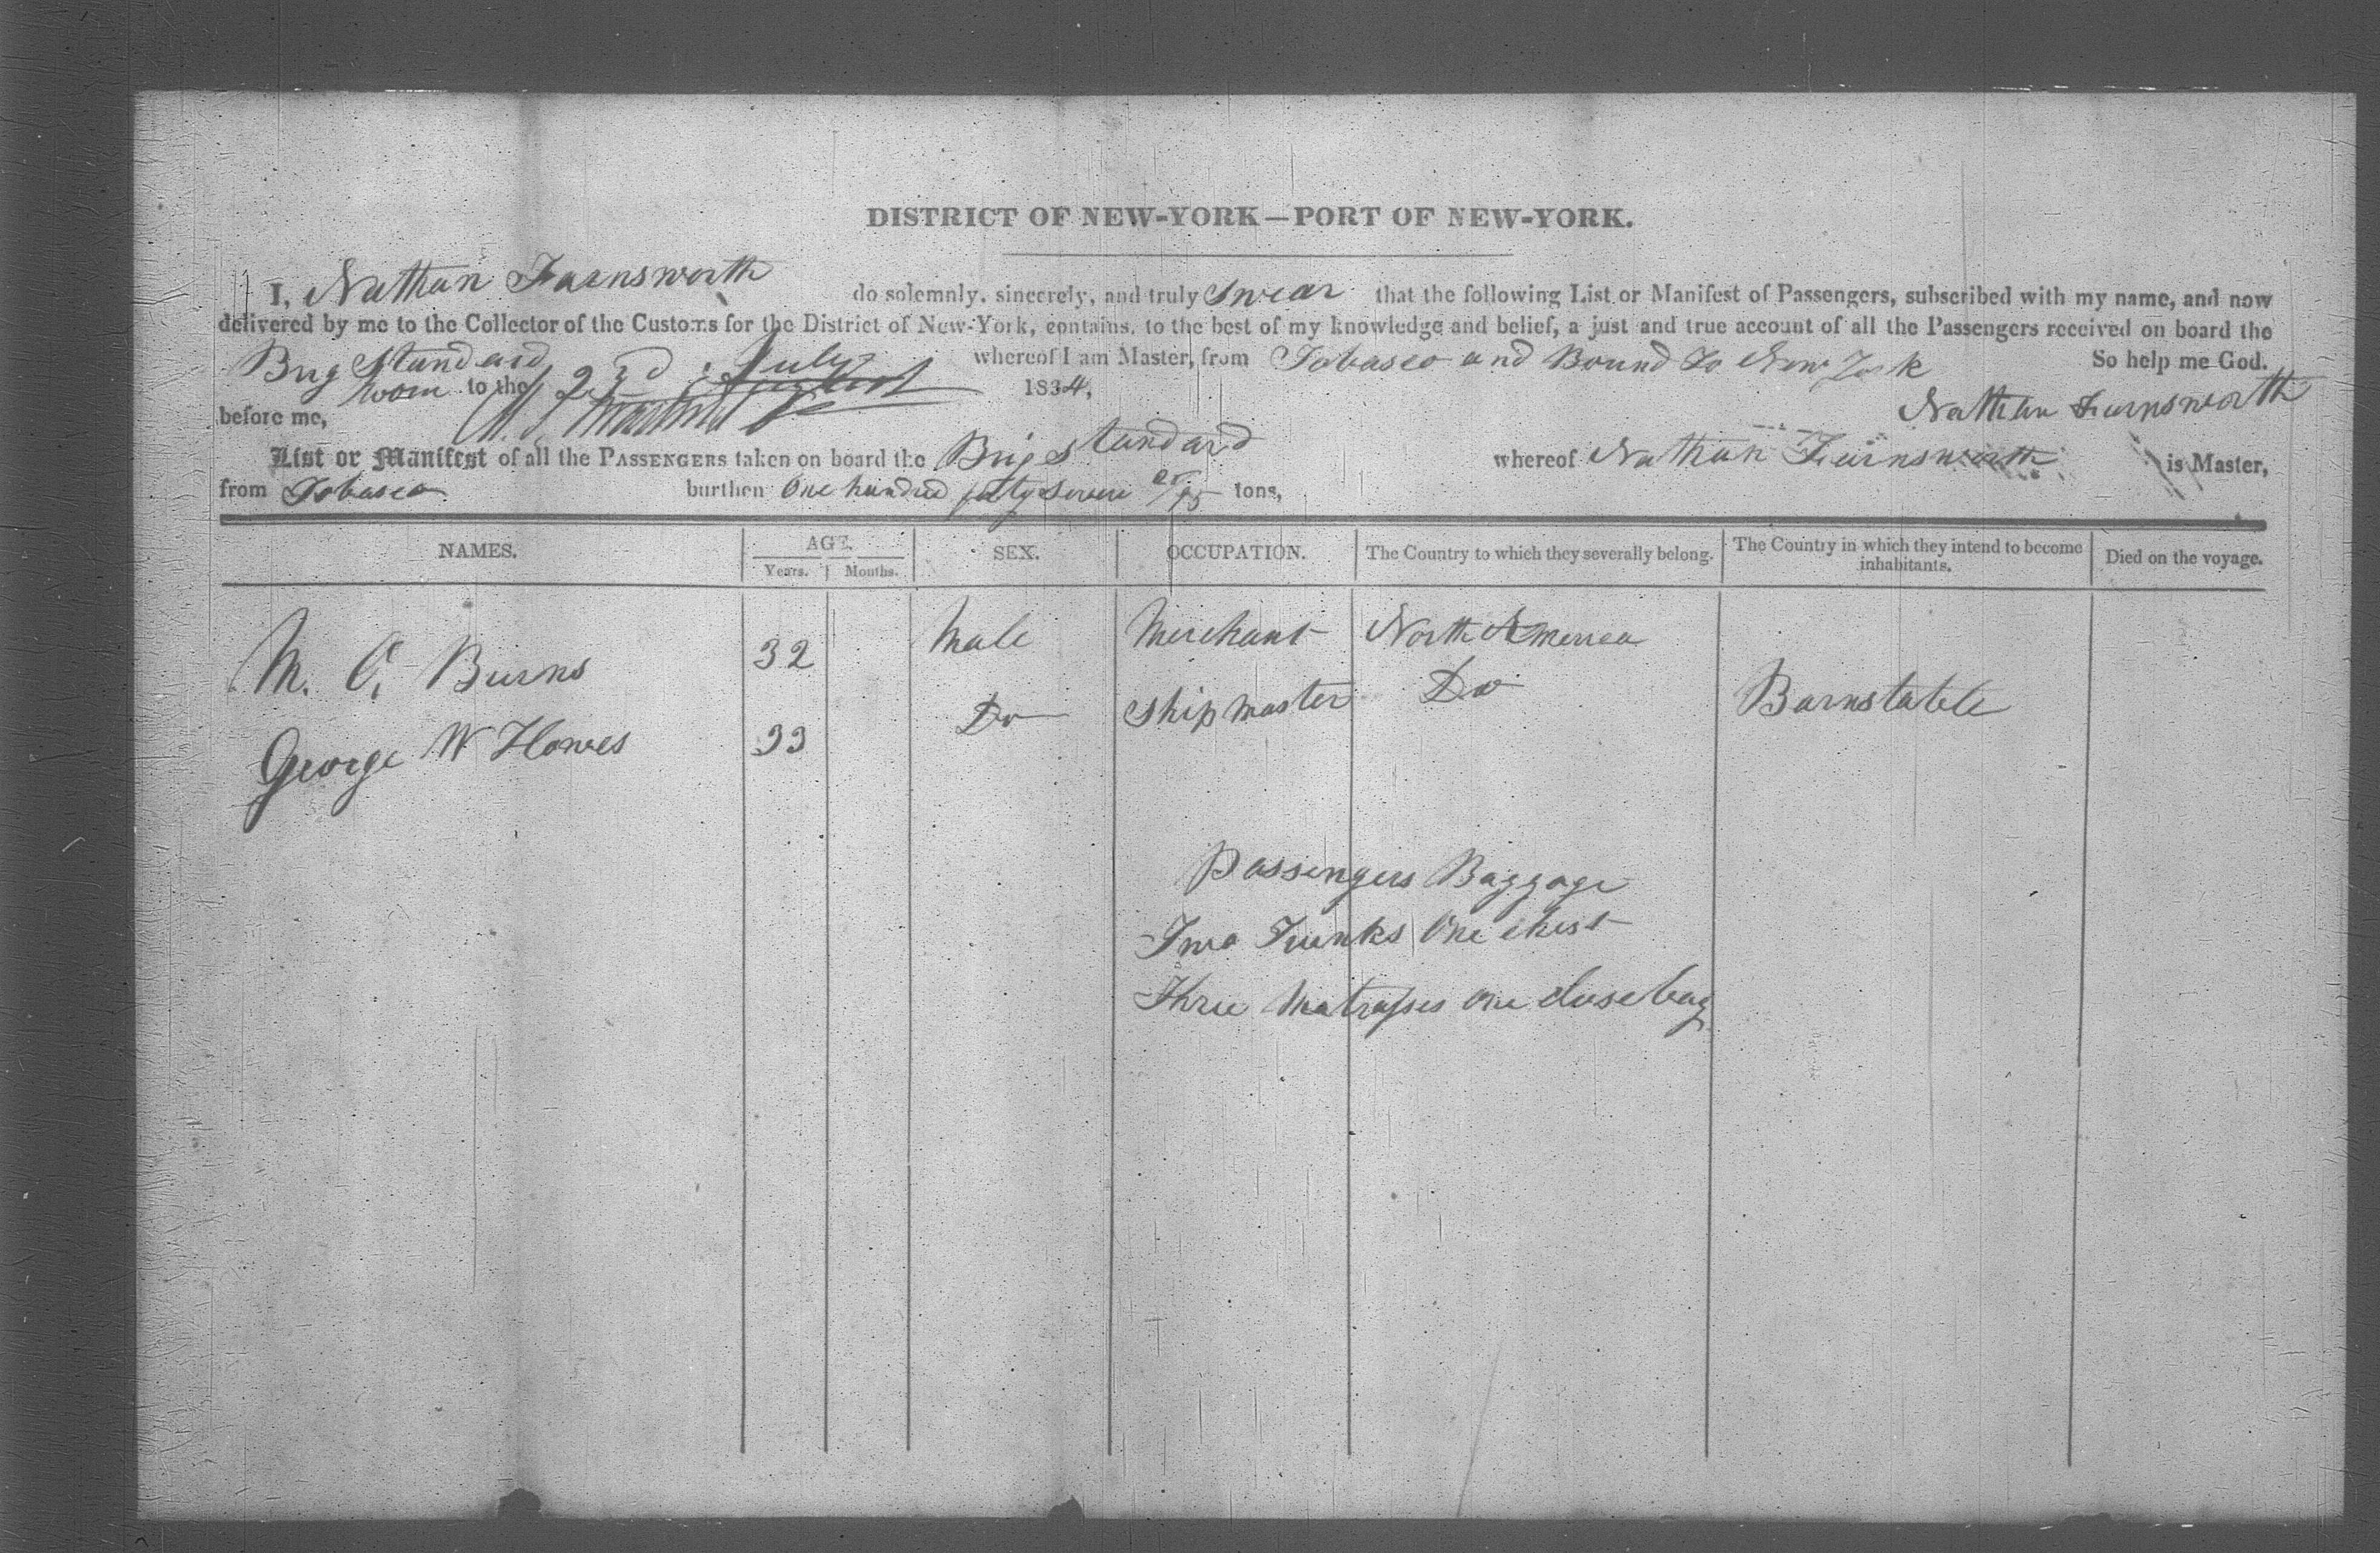 DISTRICT OF NEW-YORK—PORT OF NEW-YORK.
I, Nathan Farnsworth do solemnly, sincerely, and truly swear that the following List or Manifest of Passengers, subscribed with my name, and now
delivered by me to the Collector of the Customs for the District of New-York, contains, to the best of my knowledge and belief, a just and true account of all the Passengers received on board the
Brig Standard whereof I am Master, from Tobasco and Bound To New York So help me God.
Sworn to the 23d July August 1834,
before me, Nathan Farnsworth
List or Manifest of all the PASSENGERS taken on board the Brig Standard whereof Nathan Farnsworth is Master,
from Tobasco burthen One hundred forty seven /95 tons,
NAMES. AGE. SEX. OCCUPATION. The Country to which they severally belong. The Country in which they intend to become inhabitants. Died on the voyage.
Years. Months.
M. C. Burns 32 Male Merchant North America
George W Howes 33 Do Ship master Do Barnstable
Passengers Baggage
Two Trunks One chest
Three Matrasses One close bag